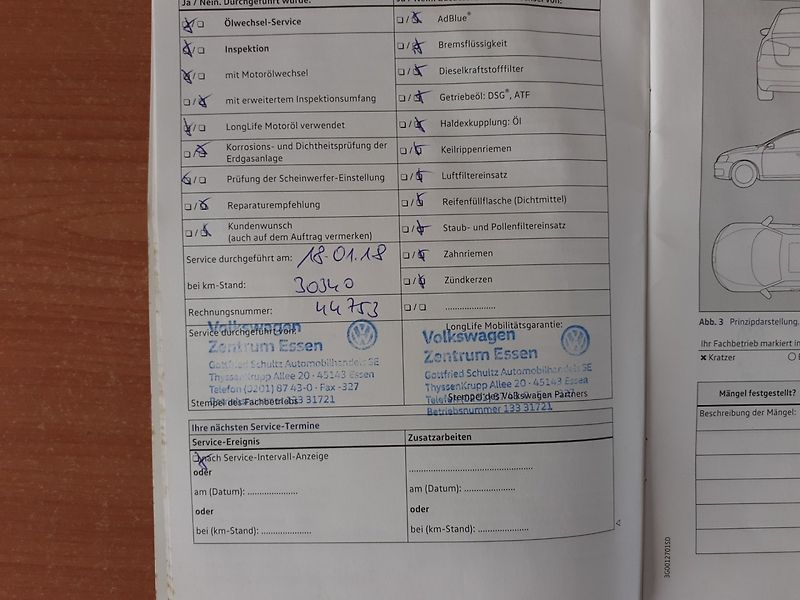 Ja / Nein. Durchgeführt wurde:
Ölwechsel-Service
Inspektion
mit Motorölwechsel
mit erweitertem Inspektionsumfang
LongLife Motoröl verwendet
Korrosions- und Dichtheitsprüfung der
Erdgasanlage
Prüfung der Scheinwerfer-Einstellung
Reparaturempfehlung
Kundenwunsch
(auch auf dem Auftrag vermerken)
Service durchgeführt am: 18.01.18
bei km-Stand: 30340
Rechnungsnummer: 44753
Service durchgeführt von:
Volkswagen
Zentrum Essen
Gottfried Schultz Automobilhandels SE
ThyssenKrupp Allee 20 · 45143 Essen
Telefon (0201) 87 43-0 · Fax -327
Betriebsnummer 133 31721
Stempel des Fachbetriebs
AdBlue®
Bremsflüssigkeit
Dieselkraftstofffilter
Getriebeöl: DSG®, ATF
Haldexkupplung: Öl
Keilrippenriemen
Luftfiltereinsatz
Reifenfüllflasche (Dichtmittel)
Staub- und Pollenfiltereinsatz
Zahnriemen
Zündkerzen
LongLife Mobilitätsgarantie:
Volkswagen
Zentrum Essen
Gottfried Schultz Automobilhandels SE
ThyssenKrupp Allee 20 · 45143 Essen
Stempel des Volkswagen Partners
Betriebsnummer 133 31721
Ihre nächsten Service-Termine
Service-Ereignis
Zusatzarbeiten
nach Service-Intervall-Anzeige
oder
am (Datum): .....................
oder
bei (km-Stand): .....................
am (Datum): .....................
oder
bei (km-Stand): .....................
Abb. 3 Prinzipdarstellung.
Ihr Fachbetrieb markiert in
Kratzer
Mängel festgestellt?
Beschreibung der Mängel:
3G0012701SD